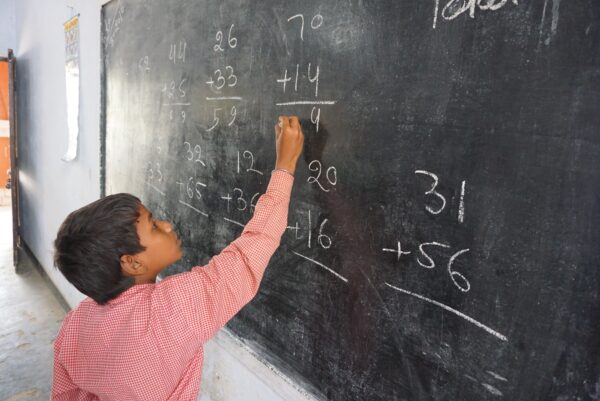 44 26 70
+33 +14
59 9
32 12 20 31
33 +65 +36 +16 +56